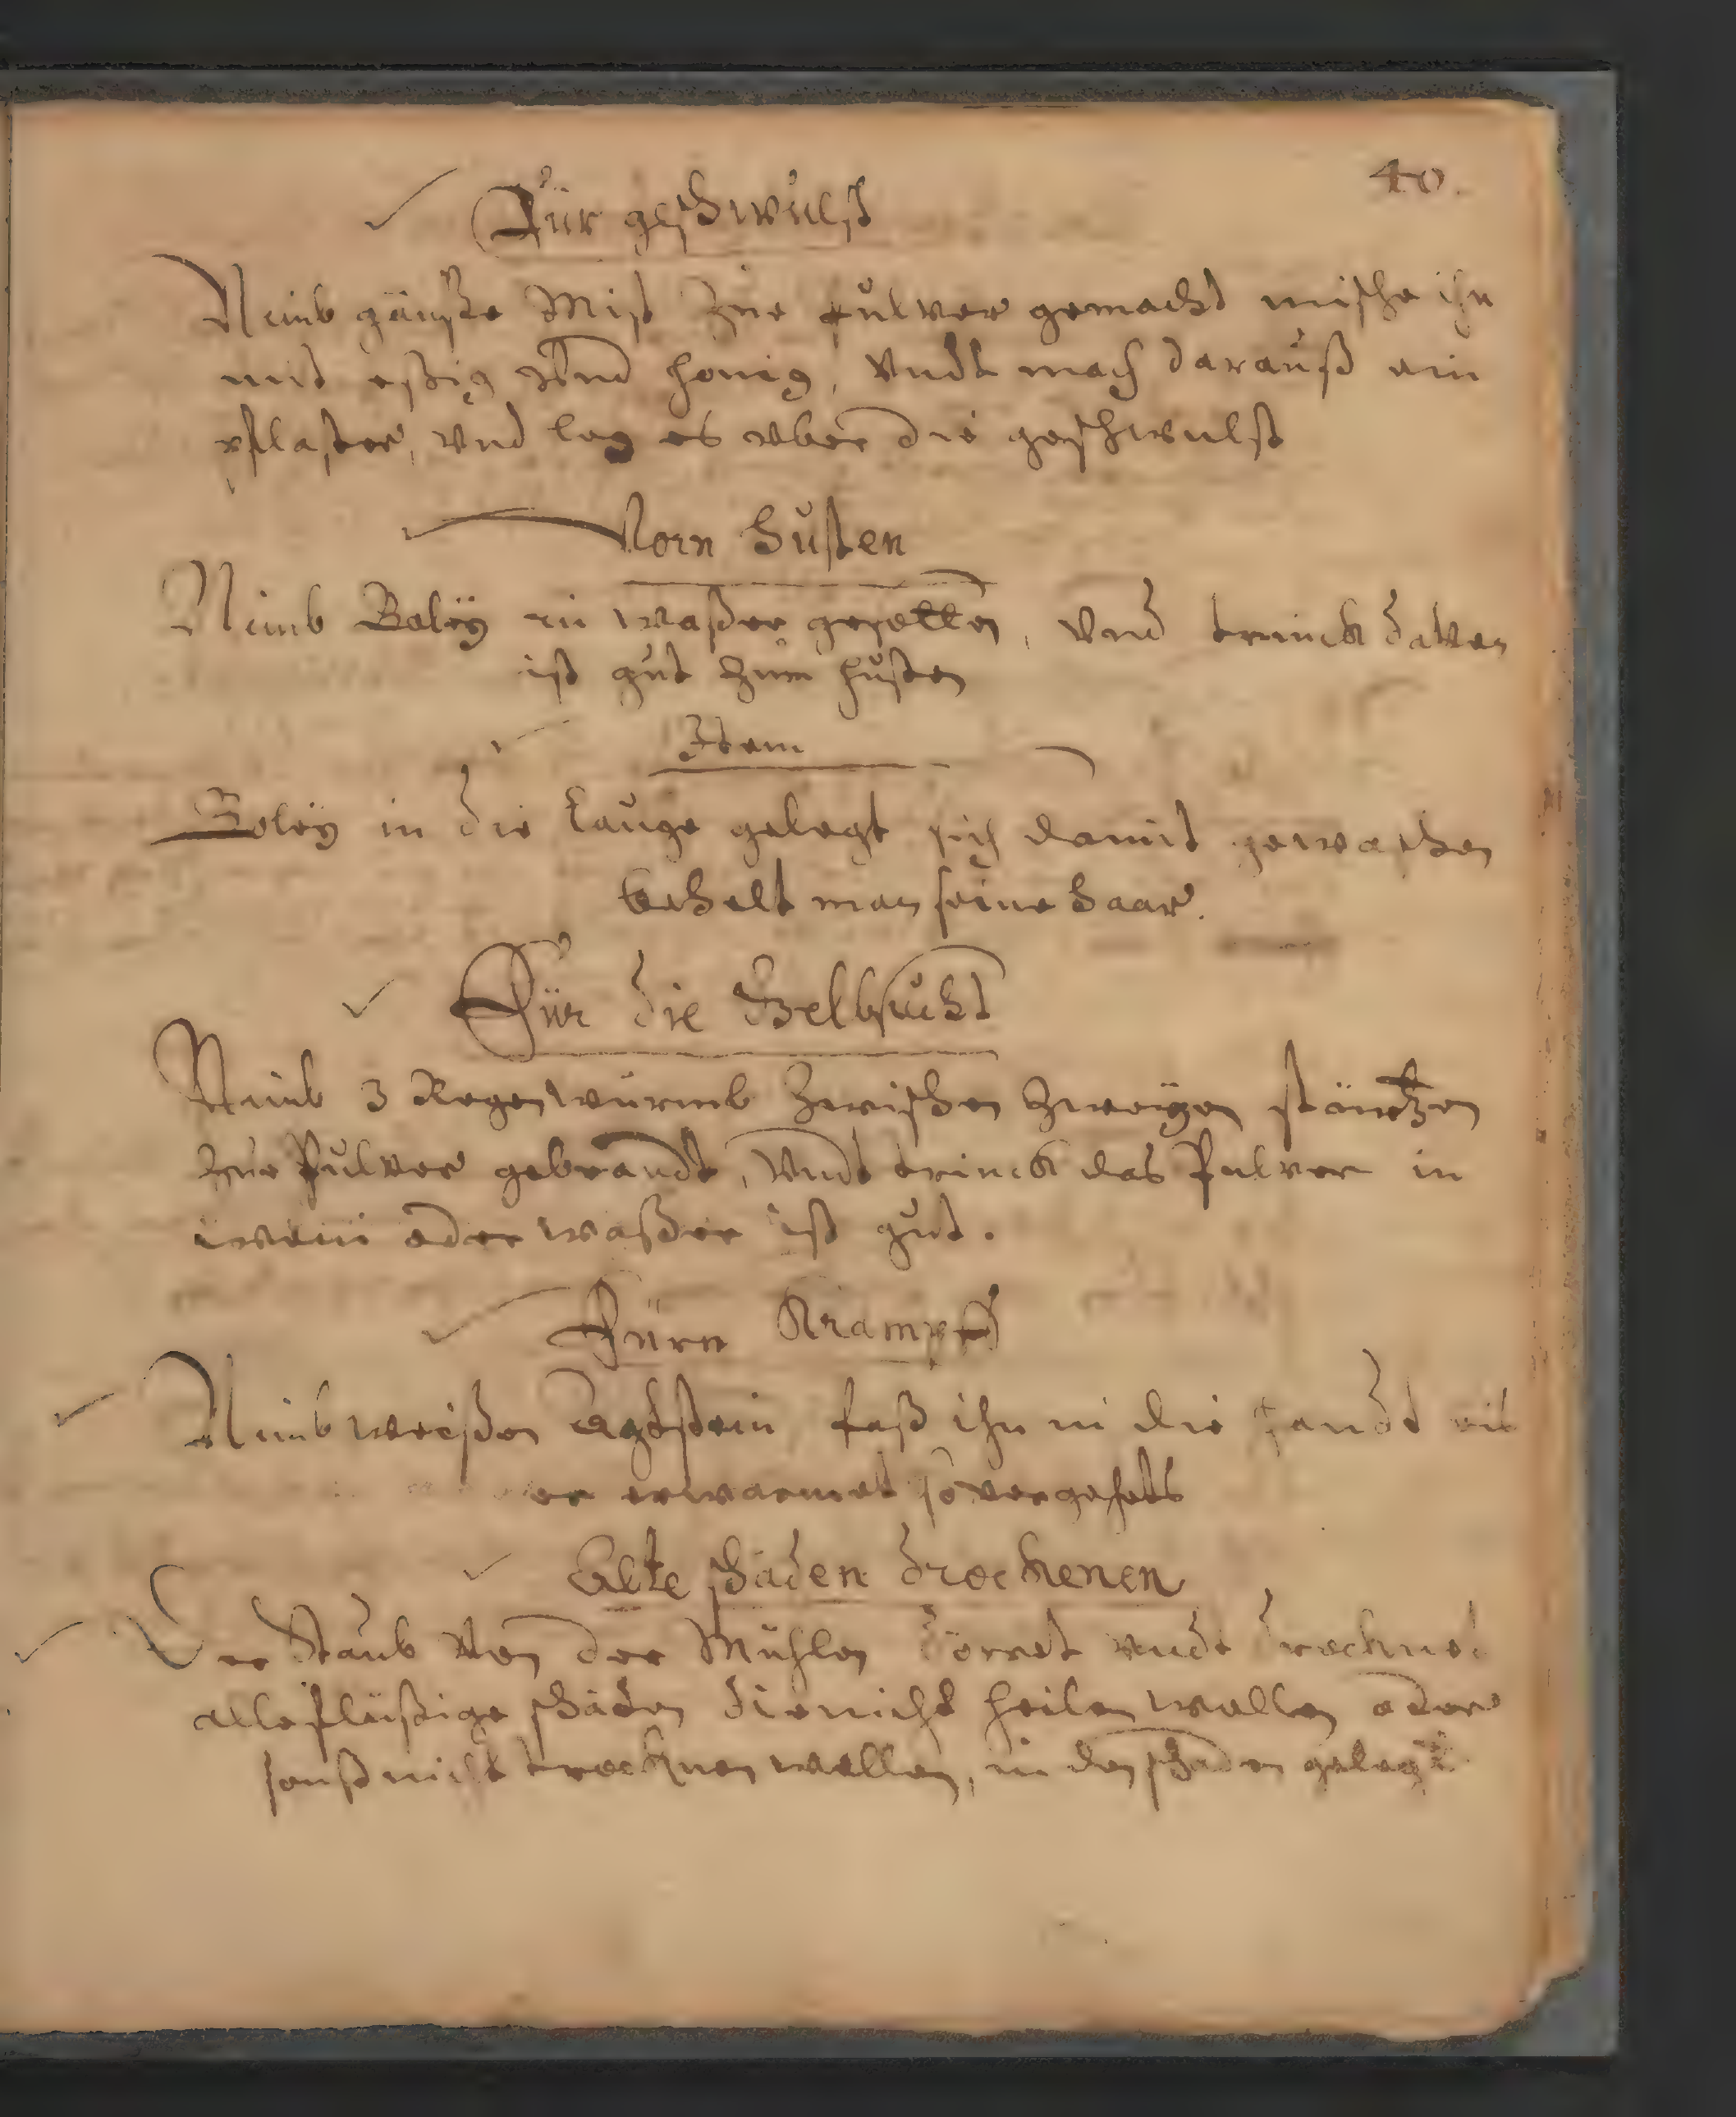 40.
Für geschwulst
Nimb gänße Mist Zue pulver gemacht mische ihn
mit eßig vnd honig, vndt mach darauß ein
pflaster, vnd leg es vber die geschwulst
Vorn Husten
Nimb Boleÿ in waßer gesotten, vnd trinck davon
ist gut Zum husten
Item
Boleÿ in die lauge gelegt sich damit gewaschen
behelt man seine Haar.
Für die Gelbsucht
Nimb 3 Regenwürmb Zwischen Zweÿen
Zue Pulver gebrandt, vndt trinck das Pulver in
wein oder waßer ist gut.
Fürn Krampff
Nimb weißen Agtstein faß ihn in die handt
er erwarmet so vergehets
Alte schäden drockenen
Der Staub von der Mühlen dörret vndt drocknet
alle flüßige schäden die nicht heilen wollen oder
sonst nicht trocknen wollen, in den schaden gelegt